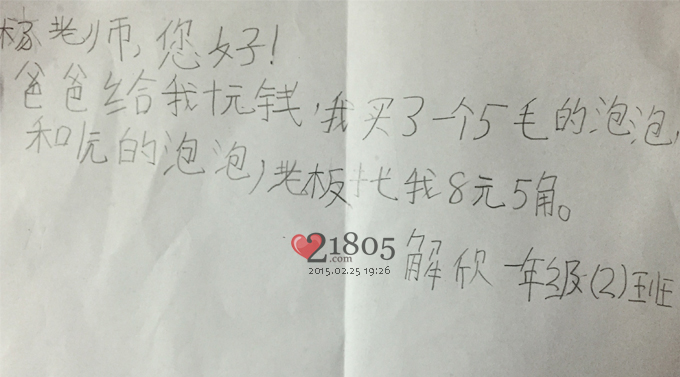 杨老师,您好!
爸爸给我十元钱,我买了一个5毛的泡泡,
和1元的泡泡,老板找我8元5角。
21805
.com
2015.02.25 19:26
解欣 一年级(2)班